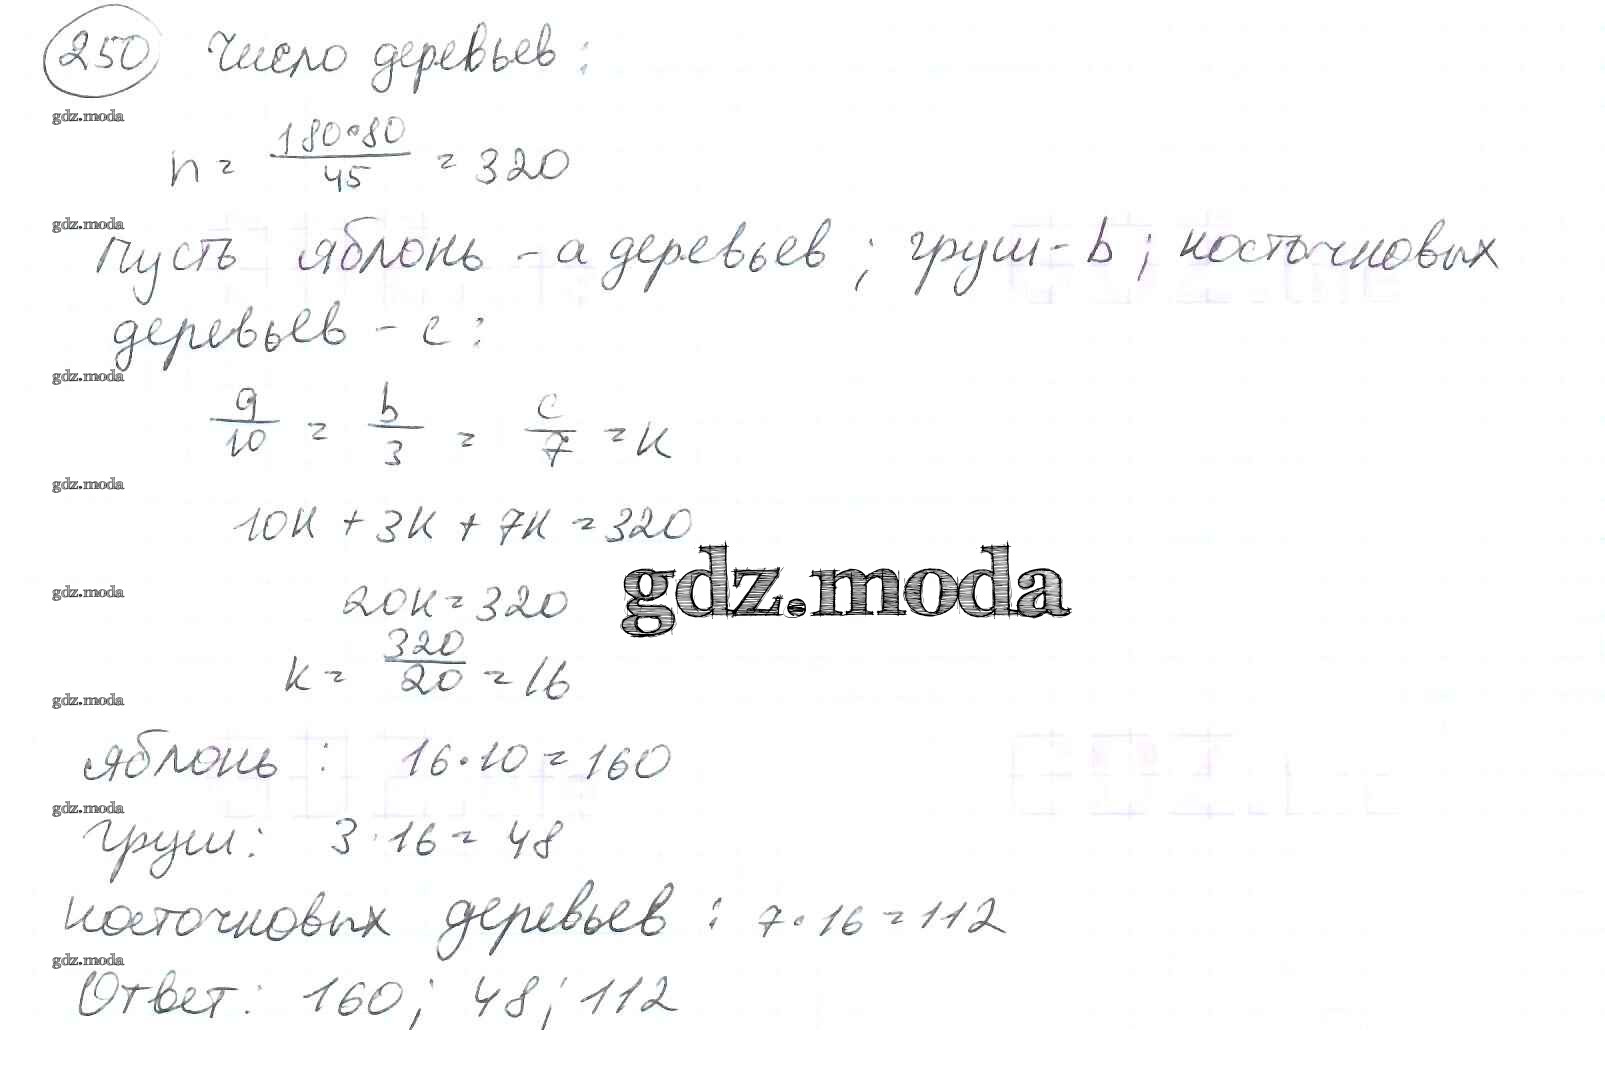 250 Число деревьев:
gdz.moda
n = 180•80/45 = 320
gdz.moda
Пусть яблонь - a деревьев; груш - b; косточковых
деревьев - c:
gdz.moda
a/10 = b/3 = c/7 = k
gdz.moda
10k + 3k + 7k = 320
gdz.moda
gdz.moda
20k = 320
k = 320/20 = 16
gdz.moda
Яблонь: 16•10 = 160
gdz.moda
Груш: 3·16 = 48
Косточковых деревьев: 7•16 = 112
gdz.moda
Ответ: 160; 48; 112